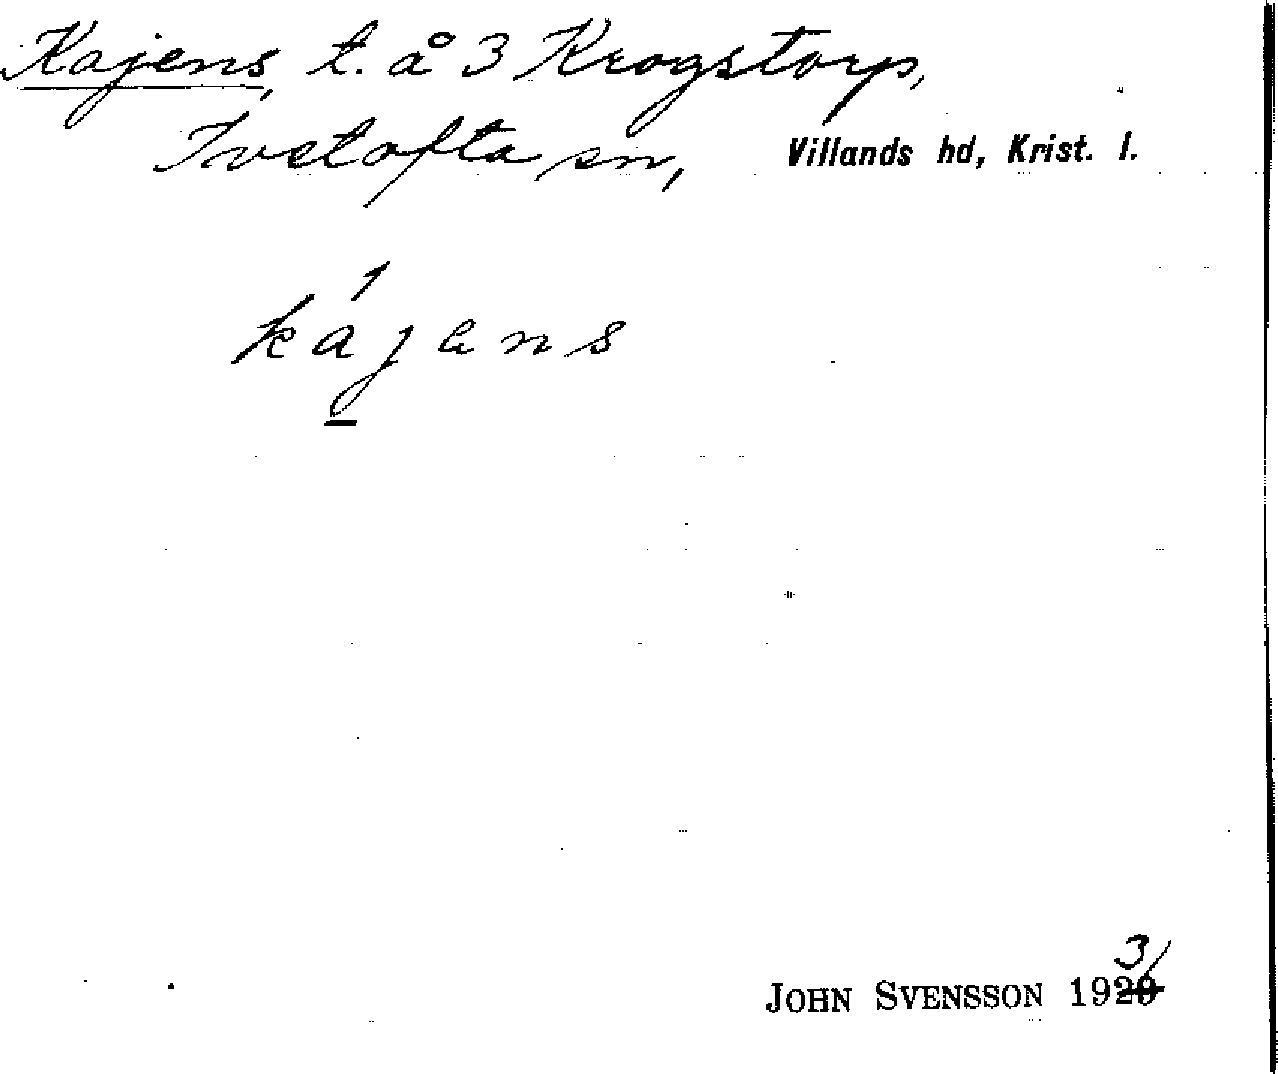 Kajens, t. å 3 Krogstorp,
Ivetofta sn, Villands hd, Krist. l.
kájens
JOHN SVENSSON 193